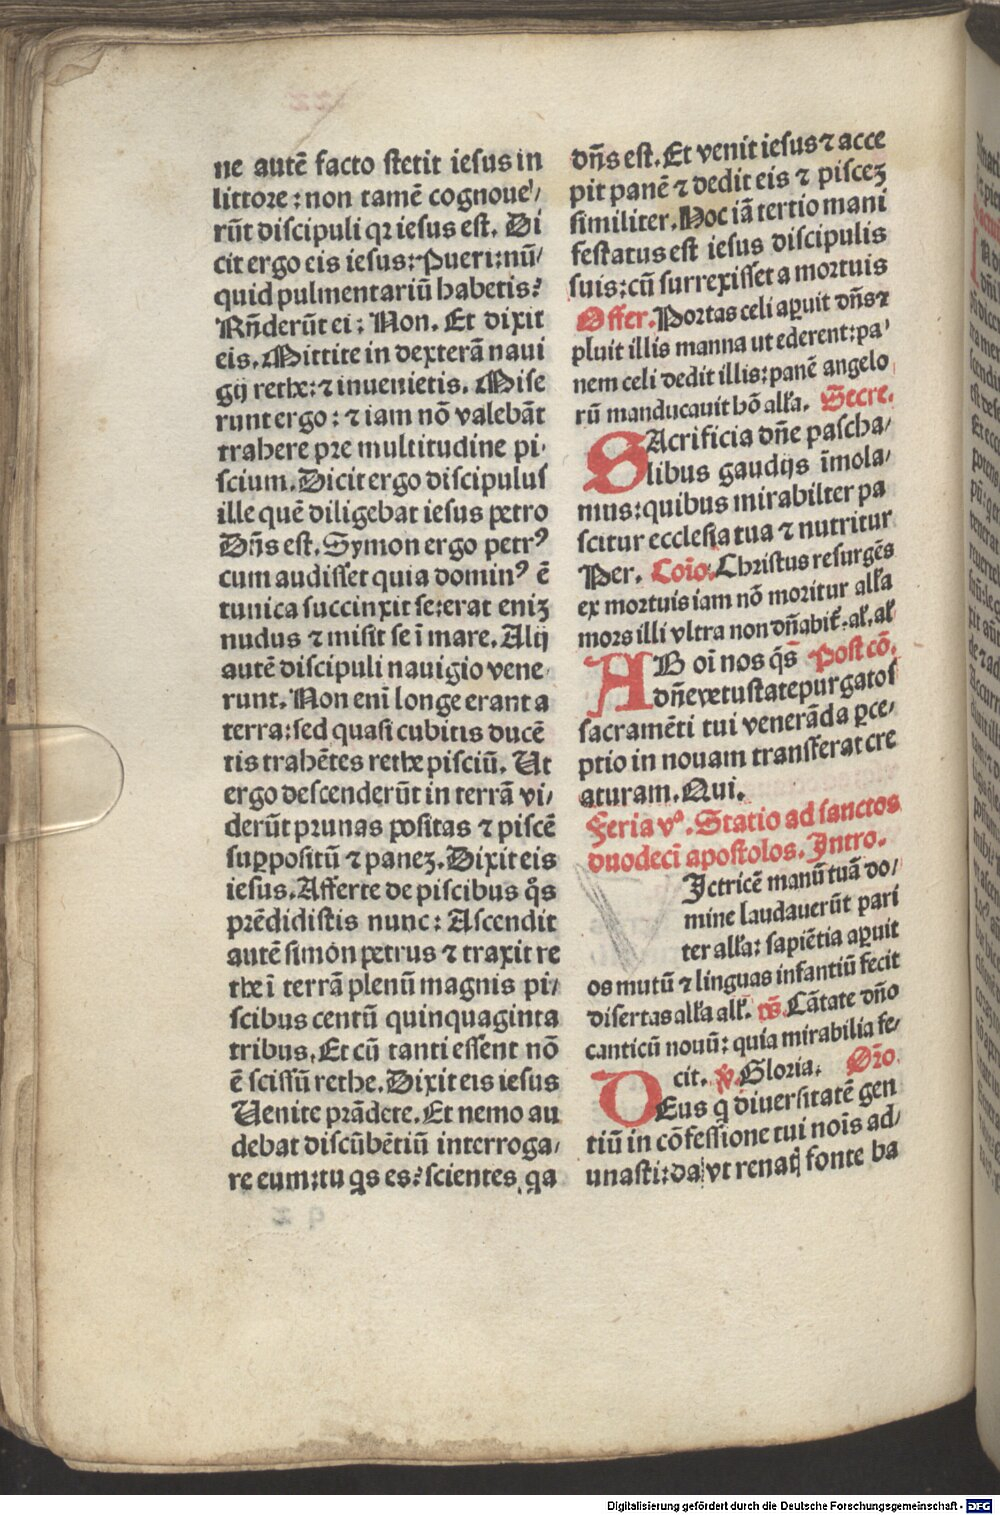 ne autē facto stetit iesus in
littore: non tamē cognoue/
rūt discipuli qꝛ iesus est. Di
cit ergo eis iesus: Pueri: nū/
quid pulmentariū habetis?
Rn̄derūt ei: Non. Et dixit
eis. Mittite in dexterā naui
gij rethe: ⁊ inuenietis. Mise
runt ergo: ⁊ iam nō valebāt
trahere pre multitudine pi-
scium. Dicit ergo discipulus
ille quē diligebat iesus petro
Dn̄s est. Symon ergo petrꝰ
cum audisset quia dominꝰ ē
tunica succinxit se: erat eniꝫ
nudus ⁊ misit se ī mare. Alij
autē discipuli nauigio vene-
runt. Non enī longe erant a
terra: sed quasi cubitis ducē
tis trahētes rethe pisciū. Ut
ergo descenderūt in terrā vi/
derūt prunas positas ⁊ piscē
suꝑpositū ⁊ paneꝫ. Dixit eis
iesus. Afferte de piscibus qͦs
prēdidistis nunc: Ascendit
autē simon petrus ⁊ traxit re
the ī terrā plenū magnis pi/
scibus centū quinquaginta
tribus. Et cū tanti essent nō
ē scissū rethe. Dixit eis iesus
Uenite prādete. Et nemo au
debat discūbētiū interroga/
re eum: tu qs es? scientes qa
dn̄s est. Et venit iesus ⁊ acce
pit panē ⁊ dedit eis ⁊ pisceꝫ
similiter. Hoc iā tertio mani
festatus est iesus discipulis
suis: cū surrexisset a mortuis
Offer. Portas celi aꝑuit dn̄s ⁊
pluit illis manna ut ederent: pa/
nem celi dedit illis: panē angelo
rū manducauit hō all'a. Secre.
SAcrificia dn̄e pascha/
libus gaudijs īmola/
mus: quibus mirabilter pa
scitur ecclesia tua ⁊ nutritur
Per. Coīo. Christus resurgēs
ex mortuis iam nō moritur all'a
mors illi vltra non dn̄abit'. al'. al'
AB oī nos q̄s Post cō.
dn̄e vetustate purgatos
sacramēti tui venerāda ꝑce/
ptio in nouam transferat cre
aturam. Qui.
Feria vª. Statio ad sanctos
duodecī apostolos. Intro.
VIctricē manū tuā do/
mine laudauerūt pari
ter all'a: sapiētia aꝑuit
os mutū ⁊ linguas infantiū fecit
disertas all'a all'. ps. Cātate dn̄o
canticū nouū: quia mirabilia fe/
cit. ꝟ. Gloria. Oro.
DEus q diuersitatē gen
tiū in cōfessione tui noīs ad/
unasti: da vt renatꝭ fonte ba
Digitalisierung gefördert durch die Deutsche Forschungsgemeinschaft - DFG